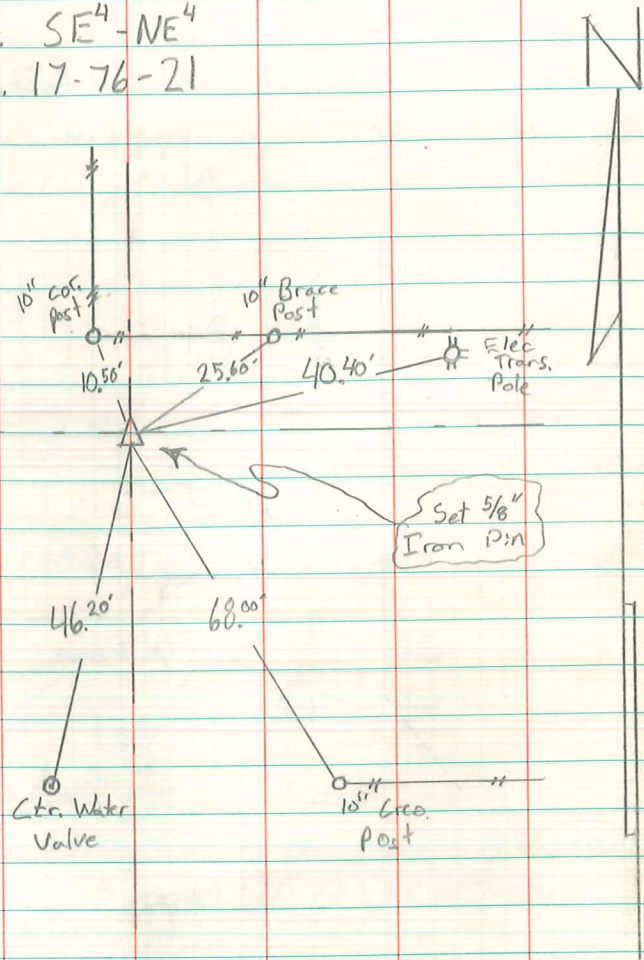 SE⁴-NE⁴
17-76-21
N
10" Cor.
post
10" Brace
Post
Elec
Trans.
Pole
10.50'
25.60'
40.40'
Set 5/8"
Iron Pin
46.20'
68.00'
Ctr. Water
Valve
10" Creo.
Post